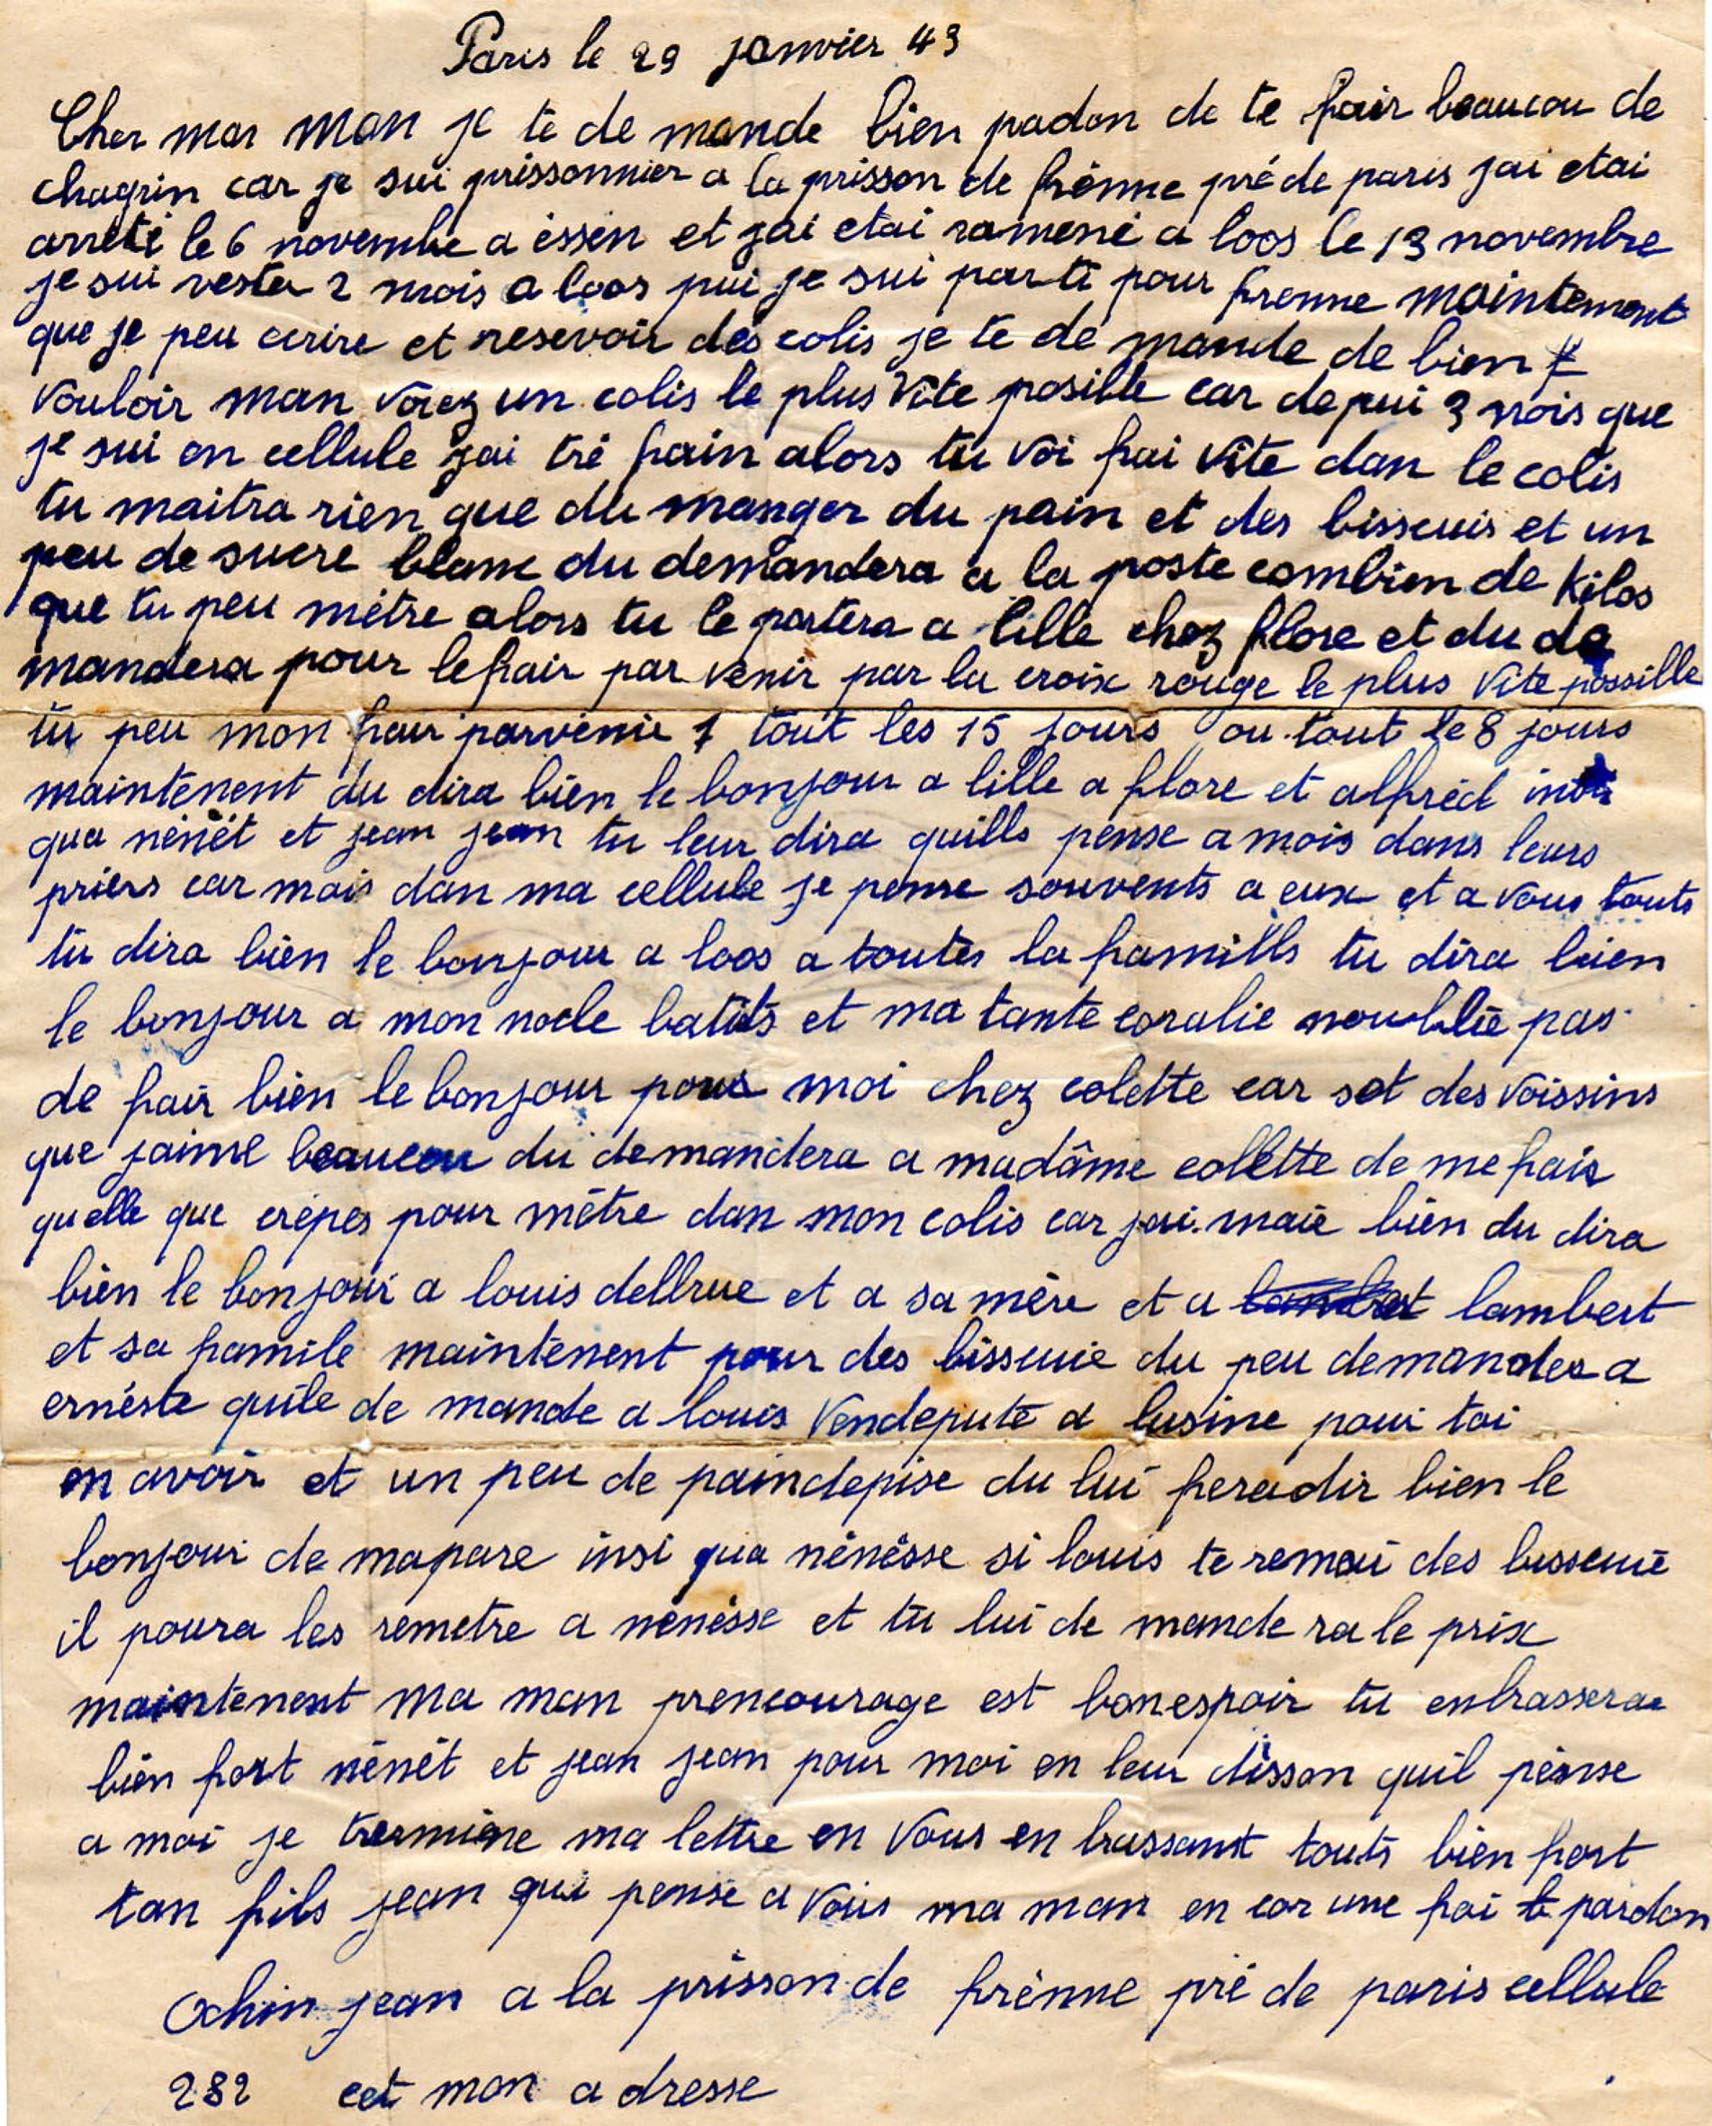 Paris le 29 janvier 43
Cher mar man je te de mande bien padon de te fair beaucou de
chagrin car je sui prissonnier a la prisson de frénne pré de paris jai etai
arrété le 6 novembre a éssen et jai etai ramené a loos le 13 novembre
je sui rester 2 mois a loos pui je sui parti pour frenne maintement
que je peu ecrire et resevoir des colis je te de mande de bien
vouloir man voiez un colis le plus vite posible car depui 3 mois que
je sui en cellule jai tré fain alors tu voi fai vite dan le colis
tu maitra rien que du manger du pain et des bisscuis et un
peu de sucre blanc du demandera a la poste combien de kilos
que tu peu métre alors tu le portera a lille chez flore et du de
mandera pour lefair par venir par la croix rouge le plus vite possille
tu peu mon fair parvenir 1 tout les 15 jours ou tout le 8 jours
maintenent du dira bien le bonjour a lille a flore et alfréd
qua nénét et jean jean tu leur dira quills pense a mois dans leurs
priers car mois dan ma cellule je pense souvents a eux et a vous touts
tu dira bien le bonjour a loos a toutes la famills tu dira bien
le bonjour a mon nocle batits et ma tante coralie noublie pas
de fair bien le bonjour pour moi chez colette car set des voissins
que jaime beaucou du demandera a madâme colette de me fair
quelle que crépes pour métre dan mon colis car jai maie bien du dira
bien le bonjour a louis dellrue et a sa mére et a lambert
et sa famile maintenent pour des bisscuie du peu demander a
ernéste quile de mande a louis Vendepute a lusine pour toi
en avoir et un peu de paindepise du lui feradir bien le
bonjour de mapare insi qua nénésse si louis te remai des busscuie
il poura les remetre a nenésse et tu lui de mande ra le prix
maintenent ma man prencourage est bonespoir tu enbrasserae
bien fort nénét et jean jean pour moi en leur disson quil pénse
a moi je termine ma lettre en vous en brassant touts bien fort
ton fils jean qui pense a vous ma man en cor une foi pardon
Ochin jean a la prisson de frénne pré de paris cellule
282 cet mon a dresse